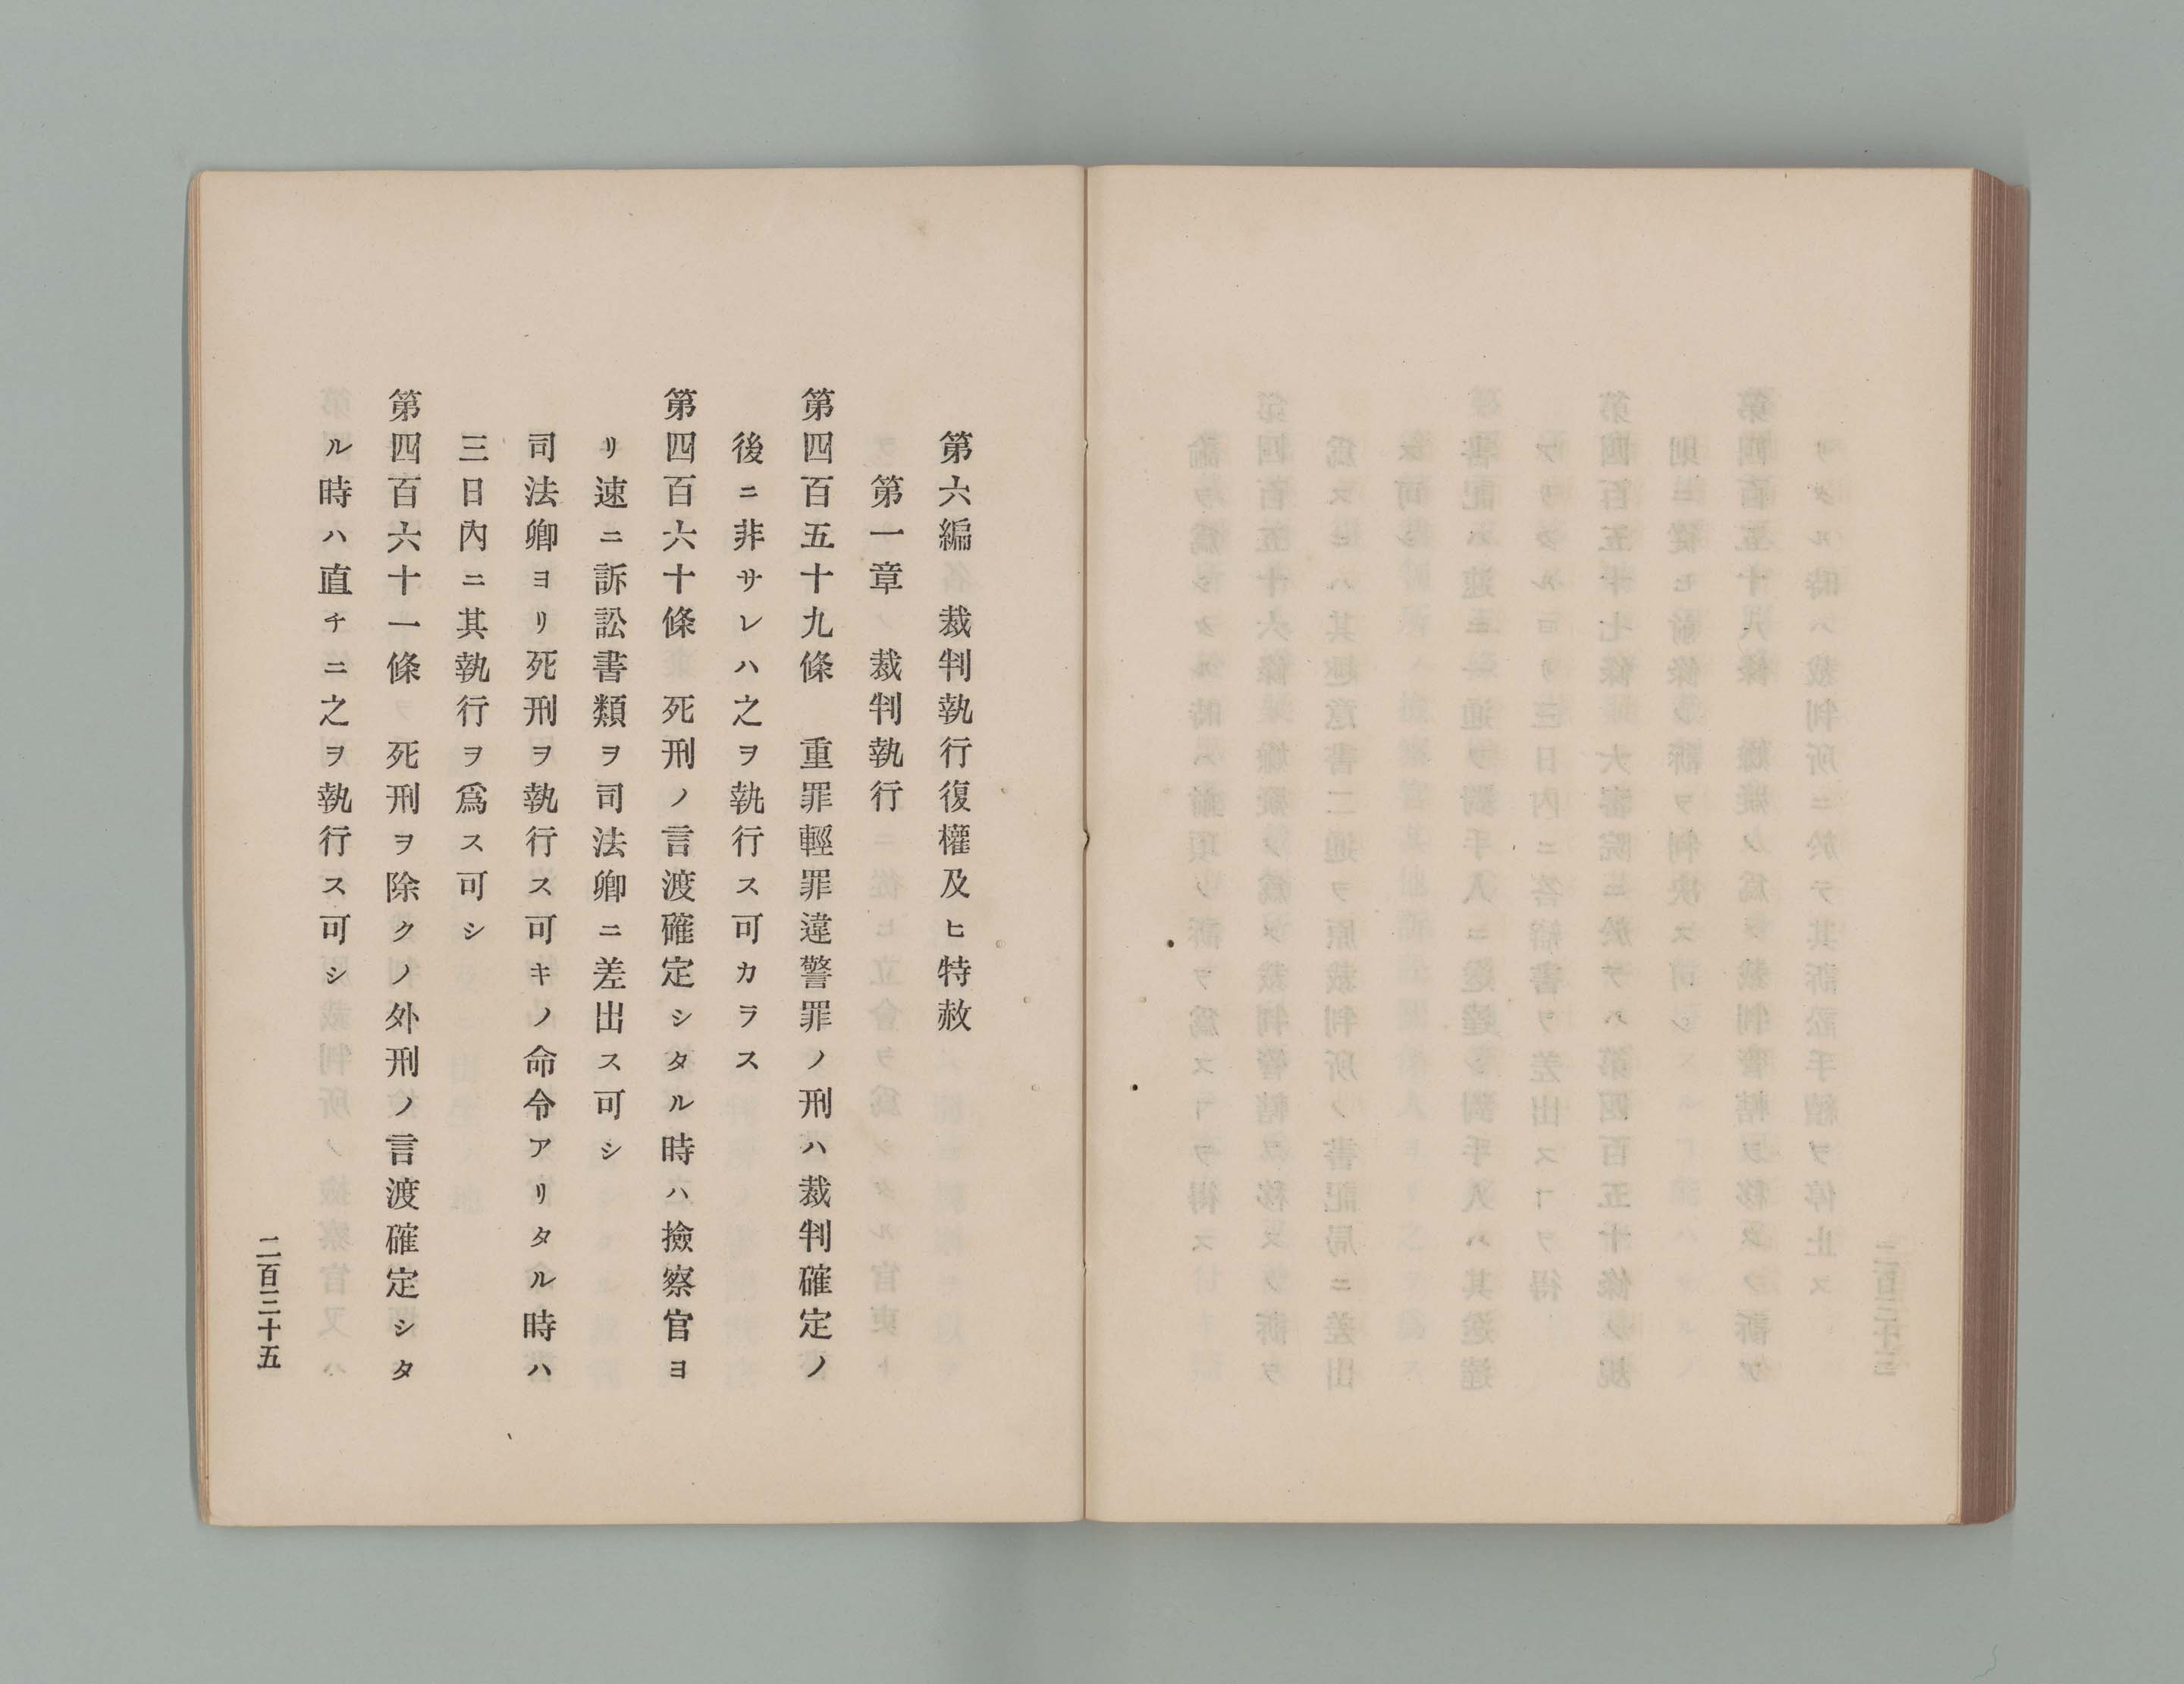 第六編　裁判執行復權及ヒ特赦
第一章　裁判執行
第四百五十九條　重罪輕罪違警罪ノ刑ハ裁判確定ノ
後ニ非サレハ之ヲ執行ス可カラス
第四百六十條　死刑ノ言渡確定シタル時ハ撿察官ヨ
リ速ニ訴訟書類ヲ司法卿ニ差出ス可シ
司法卿ヨリ死刑ヲ執行ス可キノ命令アリタル時ハ
三日內ニ其執行ヲ爲ス可シ
第四百六十一條　死刑ヲ除クノ外刑ノ言渡確定シタ
ル時ハ直チニ之ヲ執行ス可シ
二百三十五